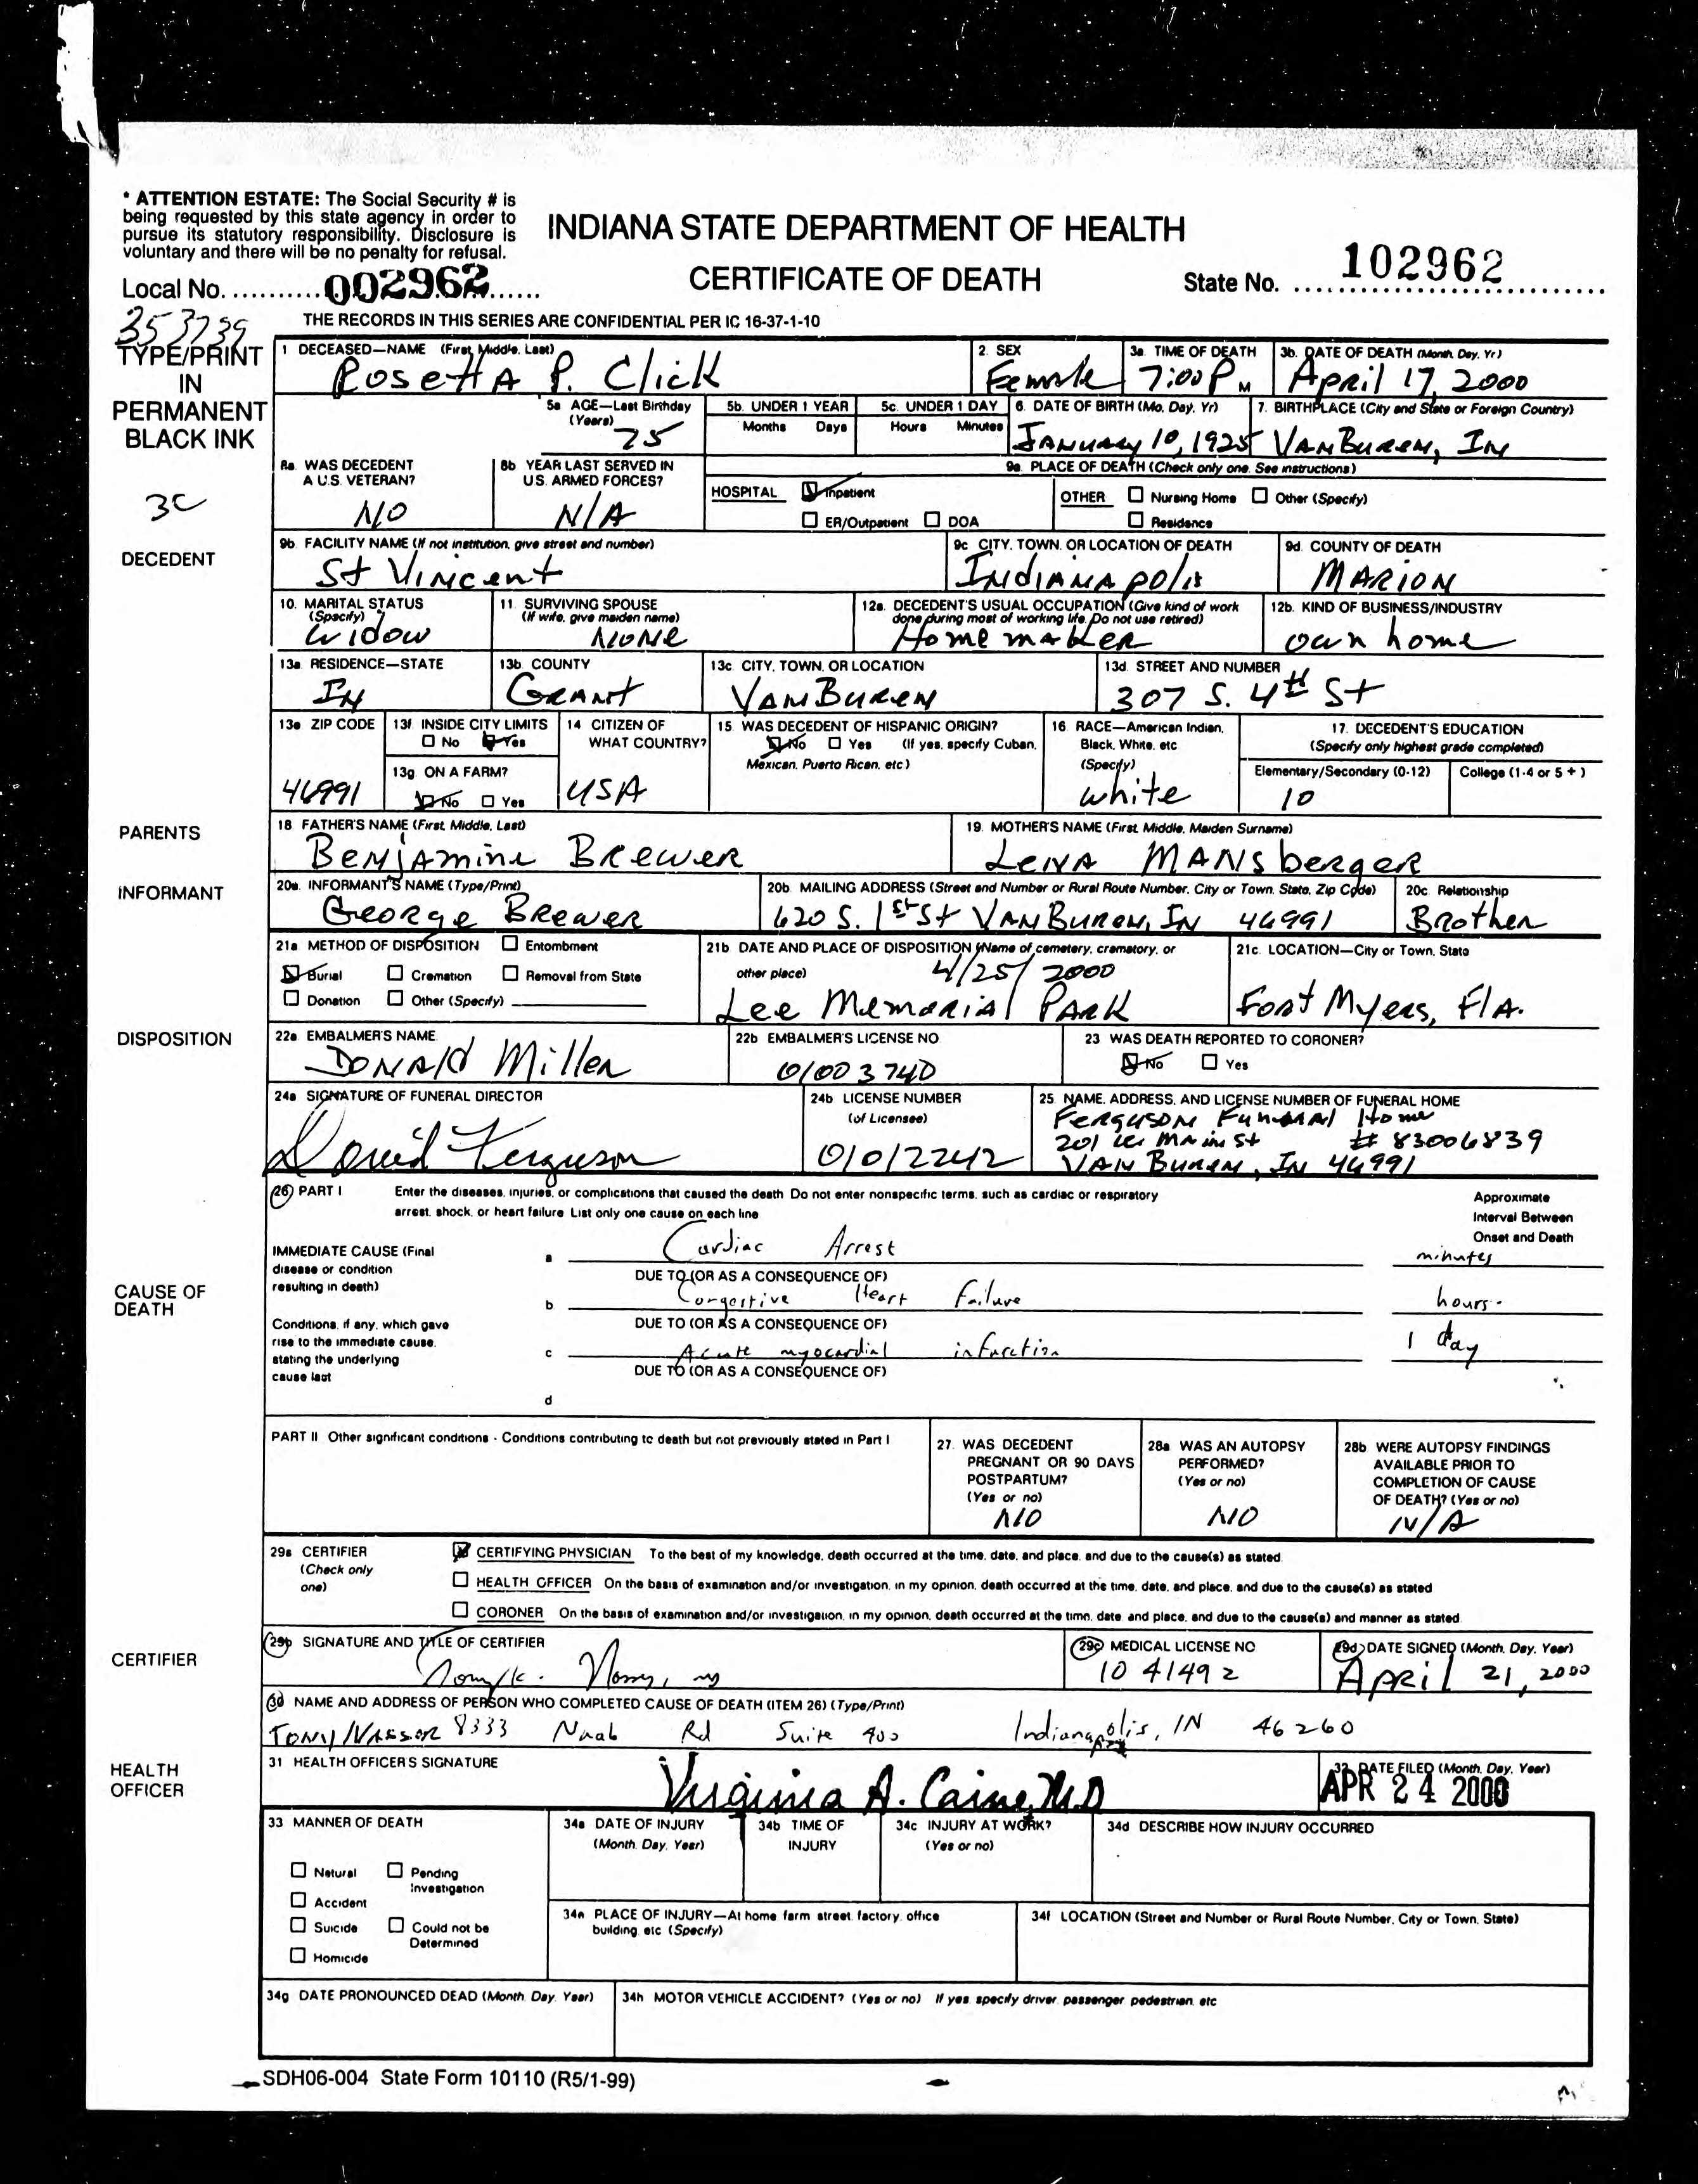 * ATTENTION ESTATE: The Social Security # is
being requested by this state agency in order to
pursue its statutory responsibility. Disclosure is
voluntary and there will be no penalty for refusal.
INDIANA STATE DEPARTMENT OF HEALTH
CERTIFICATE OF DEATH
Local No. ........... 002962 ......
State No. .... 102962
353739
THE RECORDS IN THIS SERIES ARE CONFIDENTIAL PER IC 16-37-1-10
TYPE/PRINT
IN
PERMANENT
BLACK INK
3C
DECEDENT
1 DECEASED—NAME (First, Middle, Last)
Rosetta P. Click
2. SEX
Female
3a. TIME OF DEATH
7:00 P M
3b. DATE OF DEATH (Month, Day, Yr)
April 17, 2000
5a AGE—Last Birthday
(Years)
75
5b. UNDER 1 YEAR
Months Days
5c. UNDER 1 DAY
Hours Minutes
6. DATE OF BIRTH (Mo, Day, Yr)
January 10, 1925
7. BIRTHPLACE (City and State or Foreign Country)
Van Buren, In
8a. WAS DECEDENT
A U.S. VETERAN?
No
8b YEAR LAST SERVED IN
U.S. ARMED FORCES?
N/A
9a. PLACE OF DEATH (Check only one. See instructions)
HOSPITAL Inpatient
ER/Outpatient DOA
OTHER Nursing Home Other (Specify)
Residence
9b. FACILITY NAME (If not institution, give street and number)
St Vincent
9c CITY, TOWN, OR LOCATION OF DEATH
Indianapolis
9d. COUNTY OF DEATH
Marion
10. MARITAL STATUS
(Specify)
Widow
11. SURVIVING SPOUSE
(If wife, give maiden name)
None
12a. DECEDENT'S USUAL OCCUPATION (Give kind of work
done during most of working life. Do not use retired)
Homemaker
12b. KIND OF BUSINESS/INDUSTRY
own home
13a. RESIDENCE—STATE
In
13b COUNTY
Grant
13c. CITY, TOWN, OR LOCATION
Van Buren
13d. STREET AND NUMBER
307 S. 4th St
13e ZIP CODE
46991
13f. INSIDE CITY LIMITS
No Yes
13g. ON A FARM?
No Yes
14 CITIZEN OF
WHAT COUNTRY?
USA
15 WAS DECEDENT OF HISPANIC ORIGIN?
No Yes (If yes, specify Cuban,
Mexican, Puerto Rican, etc)
16 RACE—American Indian,
Black, White, etc
(Specify)
white
17. DECEDENT'S EDUCATION
(Specify only highest grade completed)
Elementary/Secondary (0-12)
10
College (1-4 or 5 +)
PARENTS
18 FATHER'S NAME (First, Middle, Last)
Benjamine Brewer
19. MOTHER'S NAME (First, Middle, Maiden Surname)
Lena Mansberger
INFORMANT
20a. INFORMANT'S NAME (Type/Print)
George Brewer
20b. MAILING ADDRESS (Street and Number or Rural Route Number, City or Town, State, Zip Code)
620 S. 1st St Van Buren, In 46991
20c. Relationship
Brother
DISPOSITION
21a METHOD OF DISPOSITION Entombment
Burial Cremation Removal from State
Donation Other (Specify)
21b DATE AND PLACE OF DISPOSITION (Name of cemetery, crematory, or
other place)
4/25/2000
Lee Memorial Park
21c. LOCATION—City or Town, State
Fort Myers, Fla.
22a EMBALMER'S NAME
Donald Miller
22b EMBALMER'S LICENSE NO
01003740
23 WAS DEATH REPORTED TO CORONER?
No Yes
24a SIGNATURE OF FUNERAL DIRECTOR
David Ferguson
24b LICENSE NUMBER
(of Licensee)
01012242
25 NAME, ADDRESS, AND LICENSE NUMBER OF FUNERAL HOME
Ferguson Funeral Home
201 W Main St # 83006839
Van Buren, In 46991
CAUSE OF
DEATH
26 PART I Enter the diseases, injuries, or complications that caused the death Do not enter nonspecific terms, such as cardiac or respiratory
arrest, shock, or heart failure List only one cause on each line
Approximate
Interval Between
Onset and Death
IMMEDIATE CAUSE (Final
disease or condition
resulting in death)
a Cardiac Arrest minutes
DUE TO (OR AS A CONSEQUENCE OF)
b Congestive Heart Failure hours
Conditions, if any, which gave
rise to the immediate cause,
stating the underlying
cause last
DUE TO (OR AS A CONSEQUENCE OF)
c Acute myocardial infarction 1 day
DUE TO (OR AS A CONSEQUENCE OF)
d
PART II Other significant conditions - Conditions contributing to death but not previously stated in Part I
27. WAS DECEDENT
PREGNANT OR 90 DAYS
POSTPARTUM?
(Yes or no)
No
28a WAS AN AUTOPSY
PERFORMED?
(Yes or no)
No
28b WERE AUTOPSY FINDINGS
AVAILABLE PRIOR TO
COMPLETION OF CAUSE
OF DEATH? (Yes or no)
N/A
CERTIFIER
29a CERTIFIER
(Check only
one)
CERTIFYING PHYSICIAN To the best of my knowledge, death occurred at the time, date, and place, and due to the cause(s) as stated.
HEALTH OFFICER On the basis of examination and/or investigation, in my opinion, death occurred at the time, date, and place, and due to the cause(s) as stated
CORONER On the basis of examination and/or investigation, in my opinion, death occurred at the time, date, and place, and due to the cause(s) and manner as stated.
29b SIGNATURE AND TITLE OF CERTIFIER
29c MEDICAL LICENSE NO
1041492
29d DATE SIGNED (Month, Day, Year)
April 21, 2000
30 NAME AND ADDRESS OF PERSON WHO COMPLETED CAUSE OF DEATH (ITEM 26) (Type/Print)
Tony Nassor 8333 Naab Rd Suite 400 Indianapolis, IN 46260
HEALTH
OFFICER
31 HEALTH OFFICER'S SIGNATURE
Virginia A. Caine, M.D
32 DATE FILED (Month, Day, Year)
APR 24 2000
33 MANNER OF DEATH
Natural Pending
Investigation
Accident
Suicide Could not be
Determined
Homicide
34a DATE OF INJURY
(Month, Day, Year)
34b TIME OF
INJURY
34c INJURY AT WORK?
(Yes or no)
34d DESCRIBE HOW INJURY OCCURRED
34e PLACE OF INJURY—At home, farm, street, factory, office
building, etc (Specify)
34f LOCATION (Street and Number or Rural Route Number, City or Town, State)
34g DATE PRONOUNCED DEAD (Month, Day, Year)
34h MOTOR VEHICLE ACCIDENT? (Yes or no) If yes, specify driver, passenger, pedestrian, etc
SDH06-004 State Form 10110 (R5/1-99)